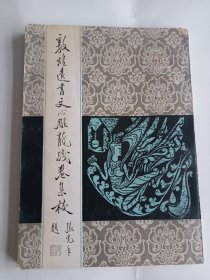 敦煌遗书文心雕龙残卷集校
张光年
题